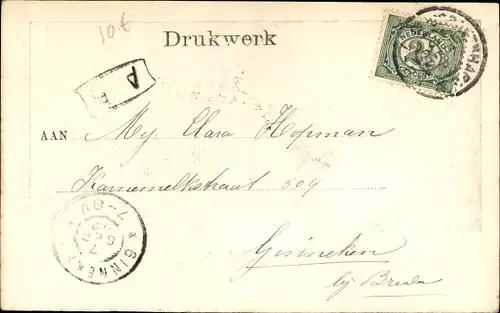 10€
Drukwerk
NEDERLAND
2½
A
AAN Mej Clara Hopman
Karnemelkstraat 509
Ginneken
bij Breda
GINNEKEN
7-8V